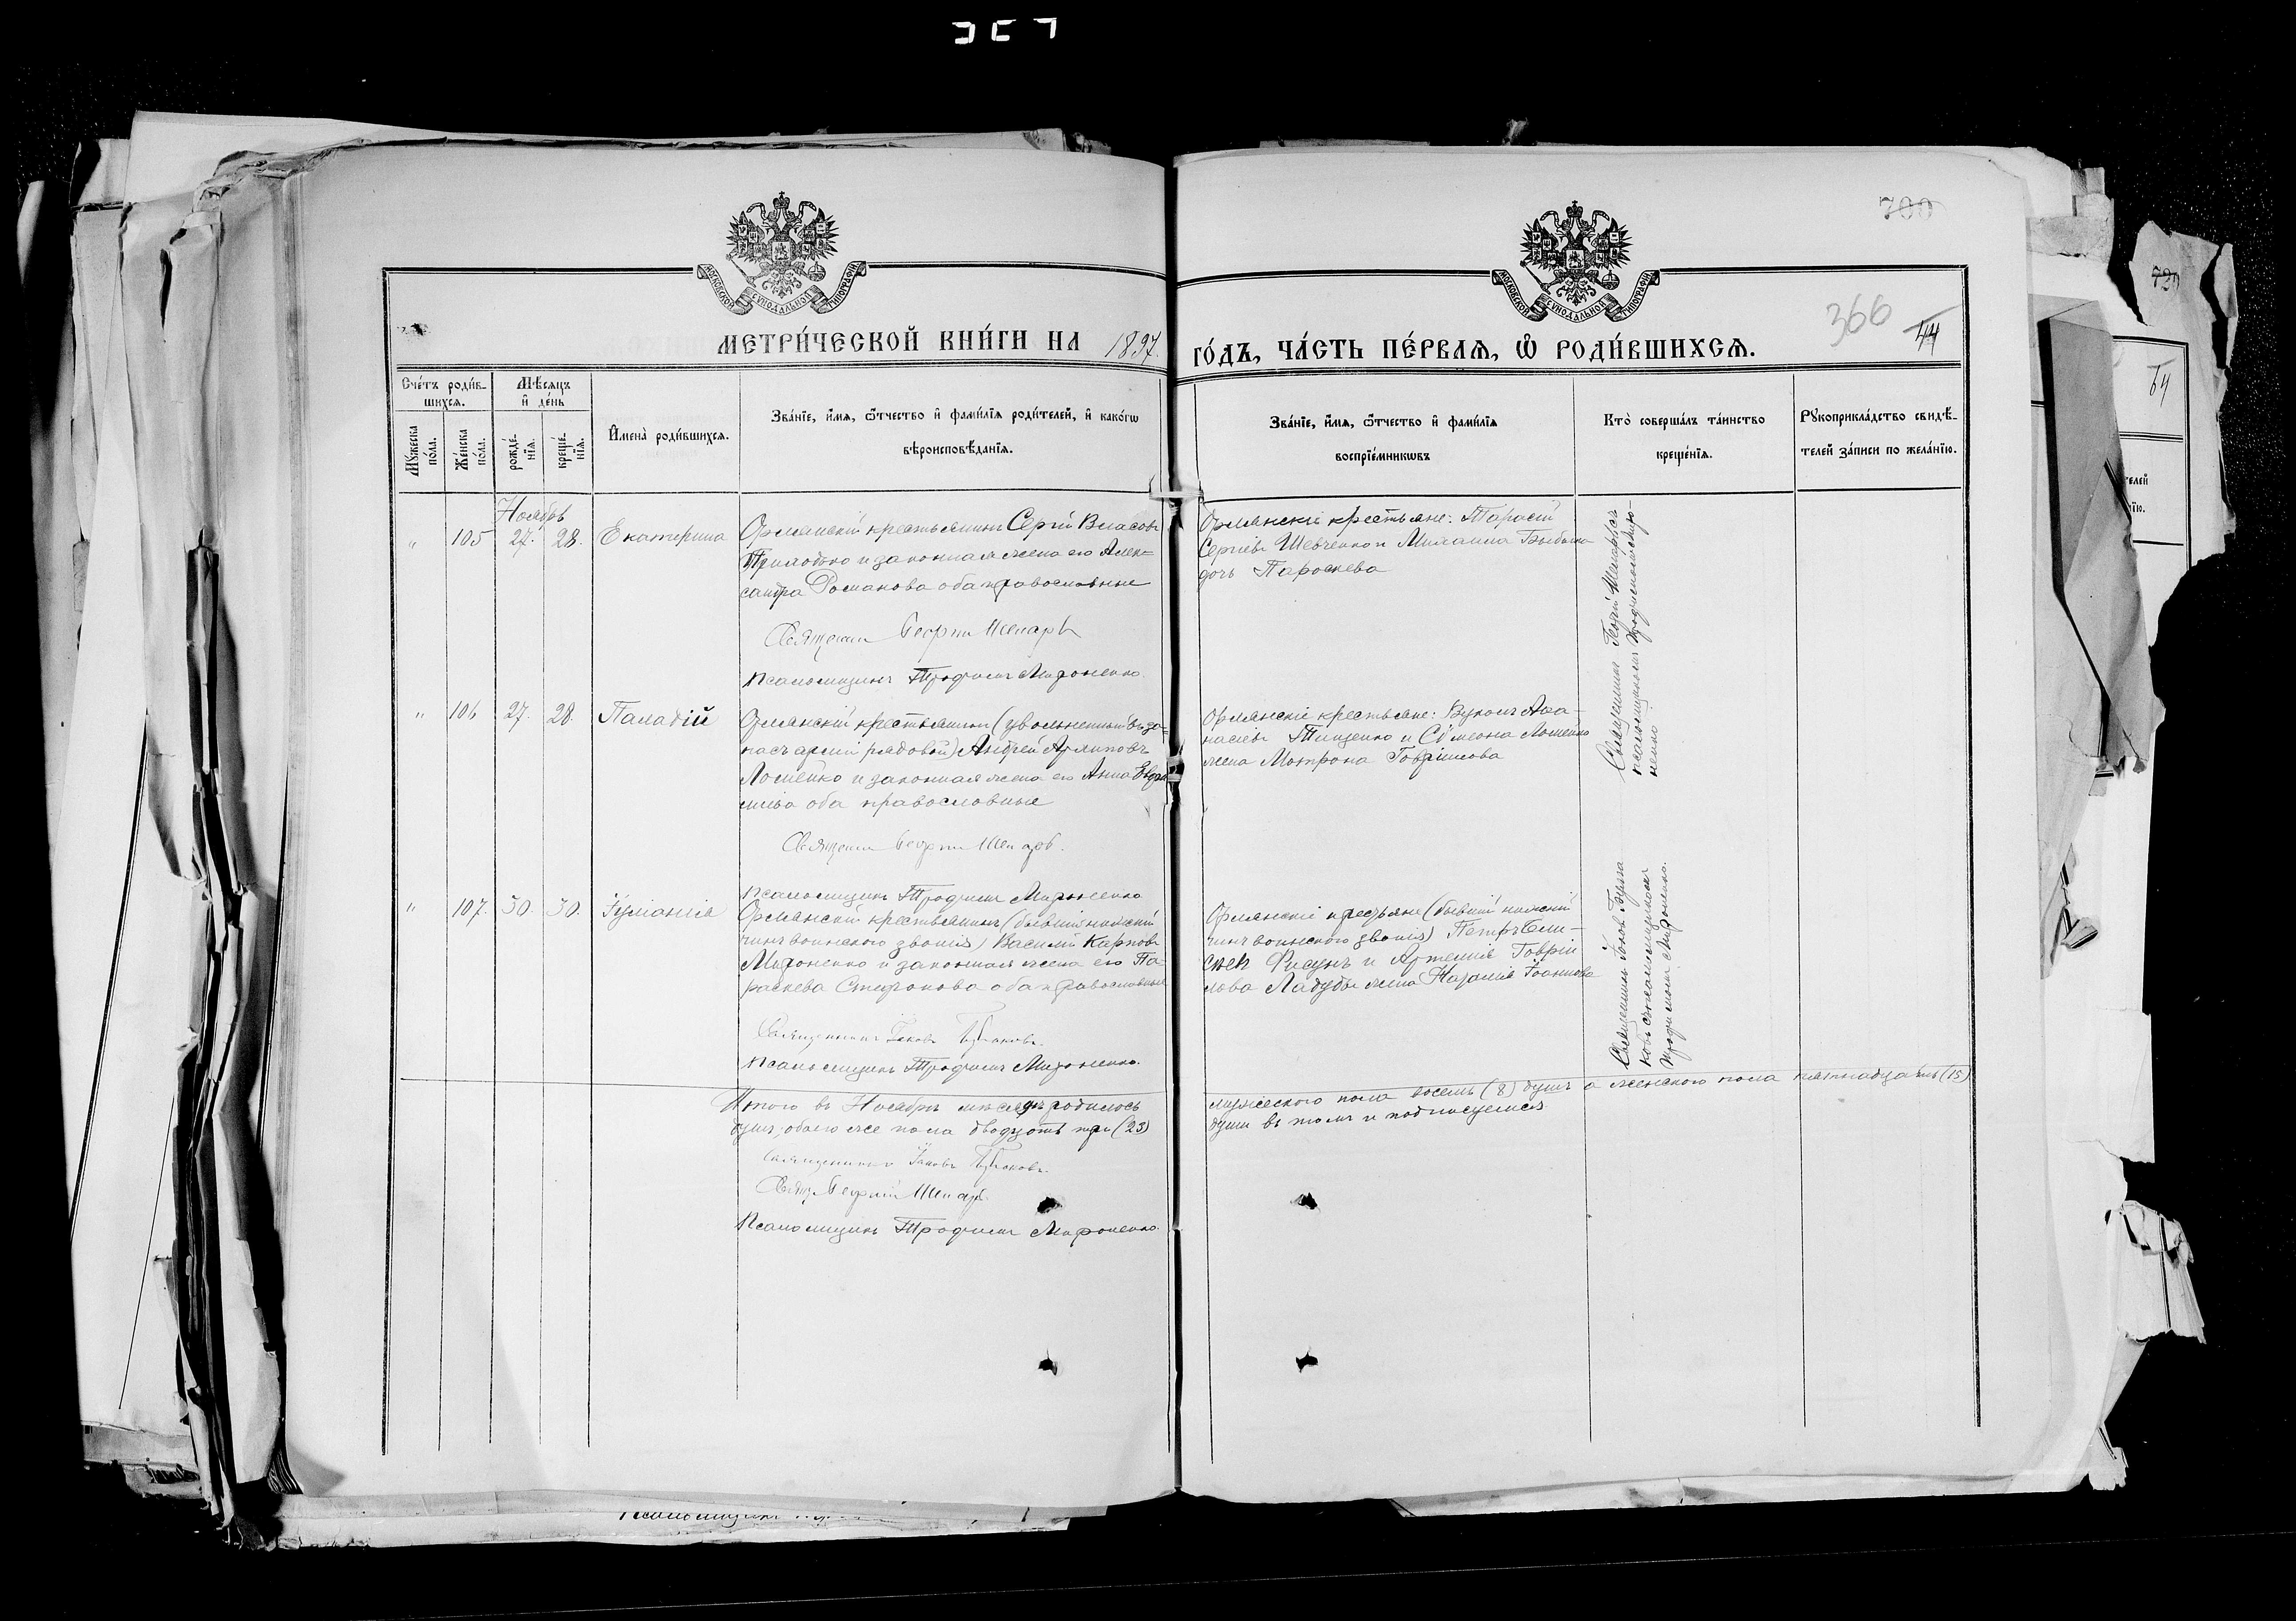 700
МОСКОВСКОЙ СѴНОДАЛЬНОЙ ТИПОГРАФІИ
МОСКОВСКОЙ СѴНОДАЛЬНОЙ ТИПОГРАФІИ
366
МЕТРИ́ЧЕСКОЙ КНИ́ГИ НА 1897. ГО́ДЪ, ЧА́СТЬ ПЕ́РВАЯ, Ѡ РОДИ́ВШИХСЯ.
44
Сче́тъ роди́в-
шихся.
Мѣ́сяцъ
и҆ де́нь
Мꙋ́жеска по́ла.
Же́нска по́ла.
рожде́-
нїя.
креще́-
нїя.
И҆мена̀ роди́вшихся.
Зва́нїе, и҆́мя, ѻ҆́тчество и҆ фами́лїя роди́телей, и҆ како́гѡ
вѣроисповѣ́данїя.
Зва́нїе, и҆́мя, ѻ҆́тчество и҆ фами́лїя
воспрїе́мникѡвъ
Кто̀ соверша́лъ та́инство
креще́нїя.
Рꙋкоприкла́дство свидѣ́-
телей за́писи по жела́нїю.
Ноябрь
" 105 27. 28. Екатерина
Орлянскій крестьянинъ Сергій Власовъ
Приходько и законная жена его Алек=
сандра Романова оба православные
Священн Георгій Шепаръ
Псаломщикъ Трофимъ Мироненко
Орлянскіе крестьяне: Тарасій
Сергіевъ Шевченко и Михаила
дочь Параскева
Священникъ Георгій Шепаръ съ
псаломщикомъ Трофимомъ Миро-
ненко
" 106 27. 28. Паладій
Орлянскій крестьянинъ (уволенный въ за=
пасъ арміи рядовой) Андрей Архиповъ
Лошенко и законная жена его Анна
оба православные
Священн Георгій Шепаръ.
Псаломщикъ Трофимъ Мироненко
Орлянскіе крестьяне: Вуколъ Аѳа-
насіевъ Тищенко и Сѵмеона Лошенко
жена Матрона Гавріилова
" 107. 30. 30. Іуліанія
Орлянскій крестьянинъ (бывшій нижній
чинъ воинскаго званія) Василій Карповъ
Мироненко и законная жена его Па-
раскева Спиронова оба православные
Священникъ Іаковъ Бураковъ.
Псаломщикъ Трофимъ Мироненко.
Орлянскіе крестьяне (бывшій нижній
чинъ воинскаго званія) Петръ Ели-
сѣевъ Фисунъ и Артемія Гаврiи
лова Ладубы жена Наталія Іоаннова
Священникъ Іаковъ Бура
ковъ съ псаломщикомъ
Трофимомъ Мироненко.
Итого въ Ноябрѣ мѣсяцѣ родилось мужескаго пола восемь (8) душъ а женскаго пола пятнадцать (15)
душъ, обоего же пола двадцать три (23) души въ томъ и подписуемся
Священникъ Іаковъ Бураковъ.
Свящ. Георгій Шепаръ.
Псаломщикъ Трофимъ Мироненко.
64
телей
нїю.